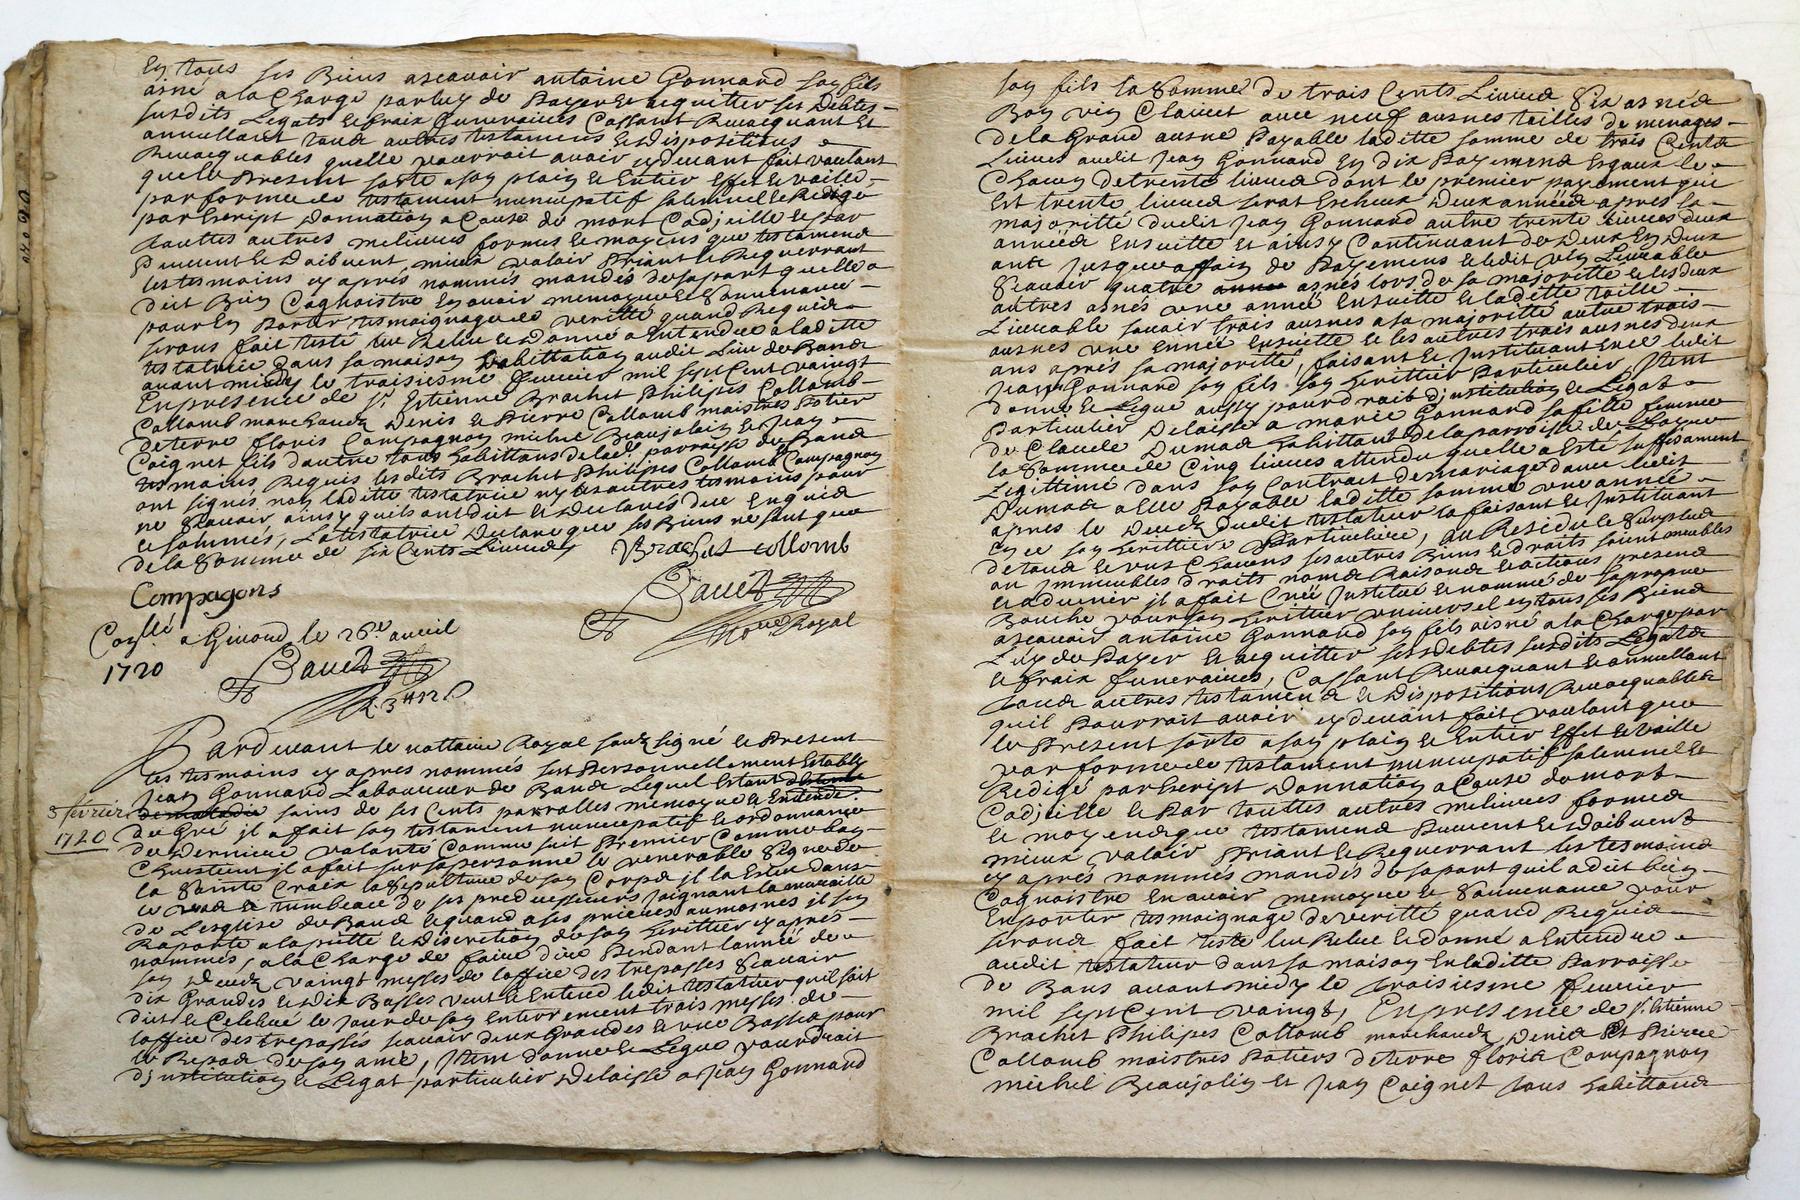 En tous ses Biens ascavoir antoine Gonnard son fils
aisné a la Charge par luy de Payer et acquitter ses Debtes
susdits Legats et fraix funeraires Cassant Revocquant Et
annullant tous autres testaments et dispositions
Revocquables quelle pourroit avoir cydevant fait voulant
que le Present sorte a son plain et Entier Effet et vaille
par forme de testament nuncupatif solemnel et Redigé
par Escript Donnation a Cause de mort Codjcille et par
touttes autres melieures formes et moyens que testamens
Peuvent et doibvent mieux valoir Priant et Requerrant
les tesmoins cy aprés nommés mandés de sa part quelle a
dict Bien Cognoistre En avoir memoyre et Souvenance
pour En Porter tesmoignage de veritté quand Requis
seront fait testé leu Releu et donné a Entendre a laditte
testatrice dans sa maison d'habittation audit Lieu de Bans
avant midy le troisiesme fevrier mil sept Cent vaingt
En presence de Sr. Estienne Brachet Philipes Collomb
Collomb marchands Denis et Pierre Collomb maistres Potier
de terre floris Compagnon michel Beaujolin et Jean
Coignet fils d'autre tous habittans de lad. parroisse de Bans
tesmoins Requis lesdits Brachet Philipes Collomb Compagnon
ont signés non laditte testatrice ny les autres tesmoins pour
ne Scavoir, ainsy quils ont dit et Declarés due Enquis
et sommés, La testatrice Declare que ses Biens ne sont que
de la Somme de six Cents Livres
Brachet collomb
Compagons
Bavet
no.re Royal
Con.llé a Givord le 26e avril
1720
Bavet
Par devant le nottaire Royal soubsigné et Present
les tesmoins cy apres nommés fut Personnellement Estably
Jean Gonnard Laboureur de Bans Lequel Estant detenu
3 février de maladie sains de ses Cents parolles memoyre et Entende.
1720 de Gré jl a fait son testament nuncupatif et ordonnance
de Derniere volonté Comme suit Premier Comme bon
Chrestient jl a fait sur sa personne le venerable Signe de
la Sainte Croix la Sepulture de son Corps jl la Eslu dans
le tumbeau de ses predecesseurs Joignant la muraille
de Lesglise de Bans et quand a ses prieres aumosnes jl sen
Raporte a la pietté et discretion de son heritier cy apres
nommés, a la Charge de faire dire Pendant lannée de
son Decedz vaingt messes de loffice des trepasses Scavoir
dix Grandes et Dix Basses veut et Entend ledit testateur quil soit
dict et Celebré le Jour de son Enterrement trois messes de
loffice des trepasses scavoir deux Grandes et une Basse pour
le Repos de son ame, Jtem donne et Legue pour droit
d'jnstitution et Legat particulier Delaissé a Jean Gonnard
son fils la Somme de trois Cents Livres Six asnés
Bon vin Clairet avec neuf ausnes toilles de menages
de la Grand ausne Payable laditte somme de trois Cents
Livres audit Jean Gonnard En dix Payemens Esgaux le
Chacun de trente livres dont le premier payement qui
Est trente livres serat Escheux deux années apres la
majoritté dudit Jean Gonnard autre trente Livres deux
années Ensuitte et ainsy Continuant de Deux En Deux
ants jusque affain de Payemens et ledit vin Livrable
Scavoir quatre asnés lors de sa majoritté et les deux
autres asnés une année Ensuitte et laditte toille
Livrable scavoir trois ausnes a sa majoritté autre trois
ausnes une année Ensuitte et les autres trois ausnes deux
ans aprés sa majoritté, faisant et Jnstituant En ce ledit
Jean Gonnard son fils son heritier Particulier, Jtem
donne et Legue aussy pour droit d'jnstitution et Legat
particulier Delaissé a marie Gonnard sa fille femme
de Claude Dumas habittant de la parroisse de
la Somme de Cinq livres attendu quelle a Esté suffisament
Legittimé dans son Contrat de mariage d'avec ledit
Dumas a Elle Payable laditte somme une année
apres le Decedz dudit testateur la faisant et Jnstituant
En ce son heritiere Particuliere, au Residu et Surplus
de tous et uns Chacuns ses autres Biens et droits soient meubles
ou Jmmeubles droits noms Raisons et actions presens
et advenir jl a fait Creé Jnstitué et nommé de sa propre
Bouche pour son heritier universel en tous ses Biens
ascavoir antoine Gonnard son fils aisné a la Charge par
Luy de Payer et acquitter ses Debtes susdits Legats
et fraix funeraires, Cassant Revocquant et annullant
tous autres testamens et dispositions Revocquables
quil Pourroit avoir cy devant fait voulant que
le Present sorte a son plain et Entier Effet et vaille
par forme de testament nuncupatif solemnel et
Redigé par Escript Donnation a Cause de mort
Codjcille et Par touttes autres melieures formes
et moyens que testamens Peuvent et doibvent
mieux valoir Priant et Requerrant les tesmoins
cy aprés nommés mandés de sa part quil a dit bien
Cognoistre En avoir memoyre et Souvenance pour
En porter tesmoignage de veritté quand Requis
seront fait testé leu Releu et donné a Entendre
audit testateur dans sa maison En laditte Parroisse
de Bans avant midy le troisiesme fevrier
mil sept Cent vaingt, En presence de Sr. Estienne
Brachet Philipes Collomb marchands Denis Et Pierre
Collomb maistres Potiers de terre floris Compagnon
michel Beaujolin et Jean Coignet tous habittans